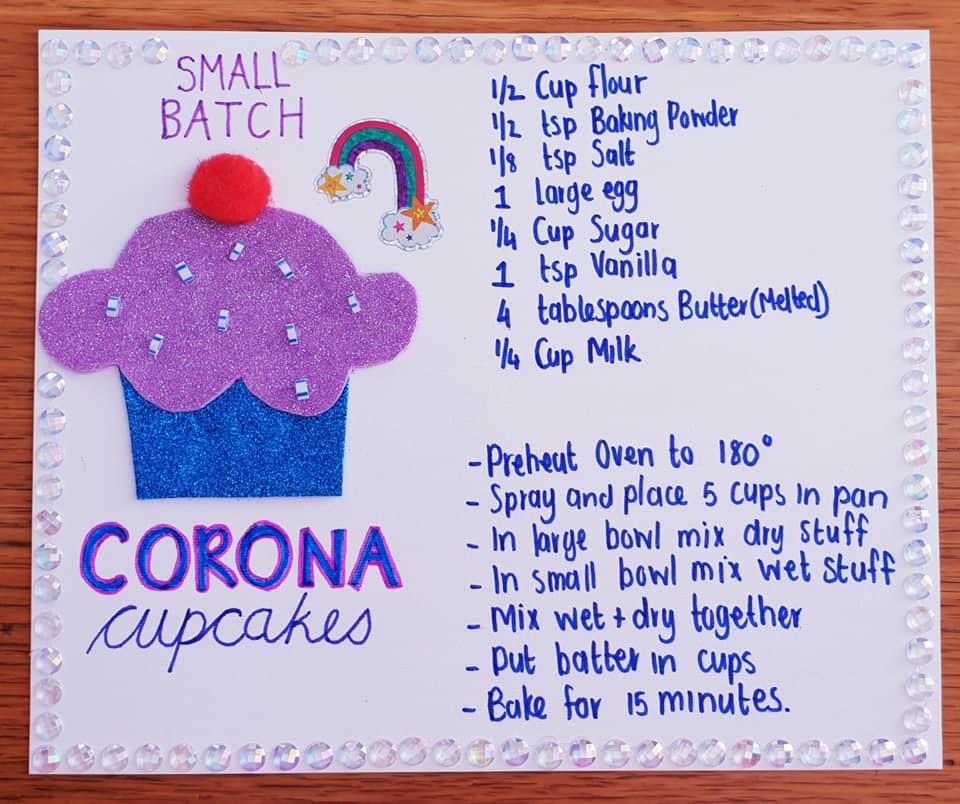 SMALL
BATCH
CORONA
cupcakes
1/2 Cup flour
1/2 tsp Baking Powder
1/8 tsp Salt
1 large egg
1/4 Cup Sugar
1 tsp Vanilla
4 tablespoons Butter(Melted)
1/4 Cup Milk
- Preheat Oven to 180°
- Spray and place 5 cups in pan
- In large bowl mix dry stuff
- In small bowl mix wet stuff
- Mix wet + dry together
- Put batter in cups
- Bake for 15 minutes.